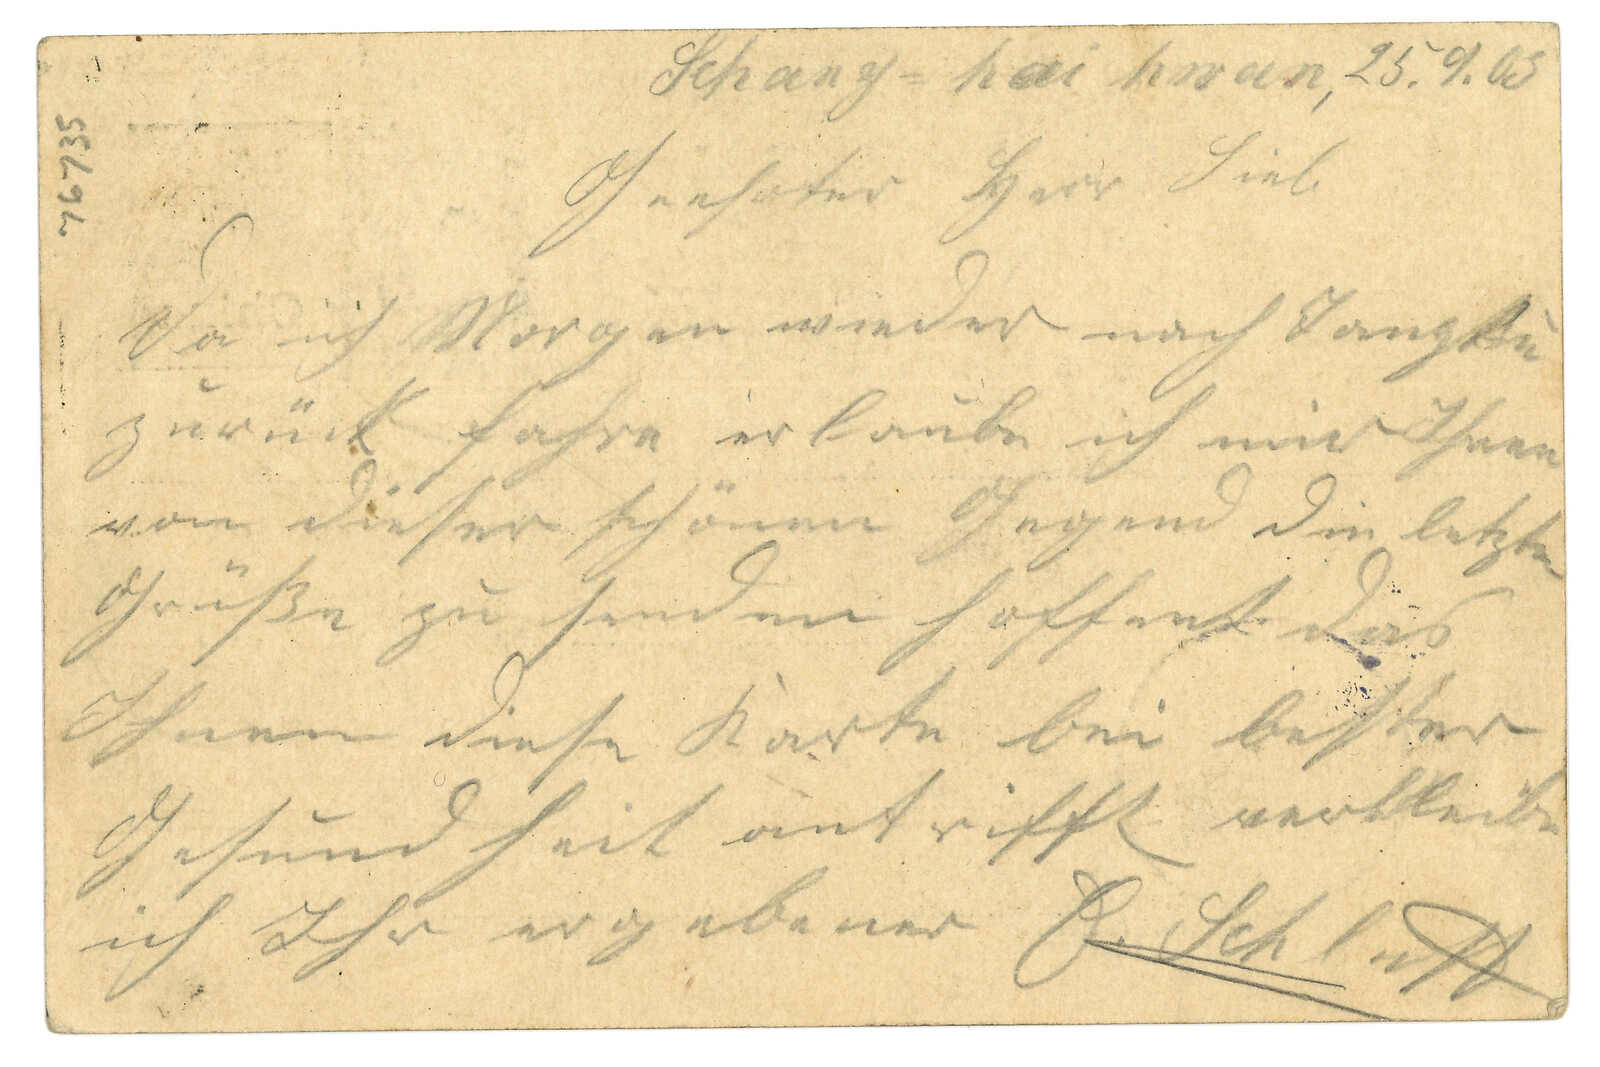 Schang-hai kwan, 25.9.03
76735
Geehrter Herr Sieb.
Da ich Morgen wieder nach Tangku
zurück fahre erlaube ich mir Ihnen
von dieser schönen Gegend die letzten
Grüße zu senden hoffent das
Ihnen diese Karte bei bester
Gesundheit antrifft verbleibe
ich Ihr ergebener